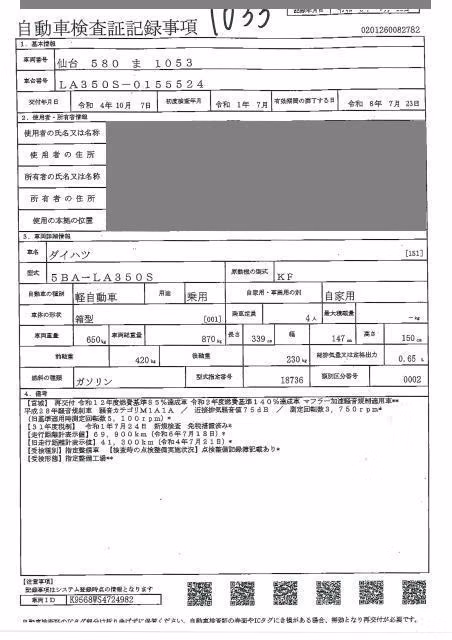 1053
自動車検査証記録事項
0201260082782
1．基本情報
車両番号 仙台 580 ま 1053
車台番号 LA350S-0155524
交付年月日 令和 4年10月 7日 初度検査年月 令和 1年 7月 有効期間の満了する日 令和 8年 7月 23日
2．使用者・所有者情報
使用者の氏名又は名称
使用者の住所
所有者の氏名又は名称
所有者の住所
使用の本拠の位置
3．車両詳細情報
車名 ダイハツ [151]
型式 5BA-LA350S 原動機の型式 KF
自動車の種別 軽自動車 用途 乗用 自家用・事業用の別 自家用
車体の形状 箱型 [001] 乗車定員 4人 最大積載量 -kg
車両重量 650kg 車両総重量 870kg 長さ 339cm 幅 147cm 高さ 150cm
前軸重 420kg 後軸重 230kg 総排気量又は定格出力 0.65L
燃料の種類 ガソリン 型式指定番号 18736 類別区分番号 0002
4．備考
【宮城】 再交付 令和12年度燃費基準85％達成車 令和2年度燃費基準140％達成車 マフラー加速騒音規制適用車**
平成28年騒音規制車 騒音カテゴリM1A1A ／ 近接排気騒音値75dB ／ 測定回転数3，750rpm*
(旧基準適用時測定回転数5，100rpm)*
【31年度税制】 令和1年7月24日 新規検査 免税措置済み*
【走行距離計表示値】69，900km（令和6年7月18日）*
【旧走行距離計表示値】41，300km（令和4年7月21日）*
【受検種別】指定整備車 【検査時の点検整備実施状況】点検整備記録簿記載あり*
【受検形態】指定整備工場**
【注意事項】
記録事項はシステム登録時点の情報となります
車両ID K9668WS4724982
自動車検査証のICタグ部分は折り曲げずに保管ください。自動車検査証の券面やICタグにき損がある場合、無効となり再交付が必要です。